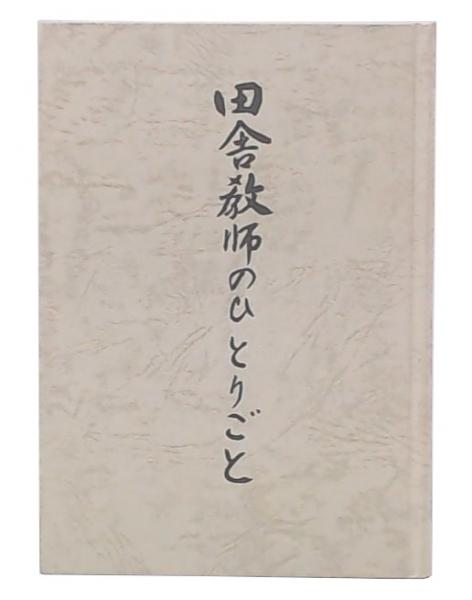 田舎教師のひとりごと